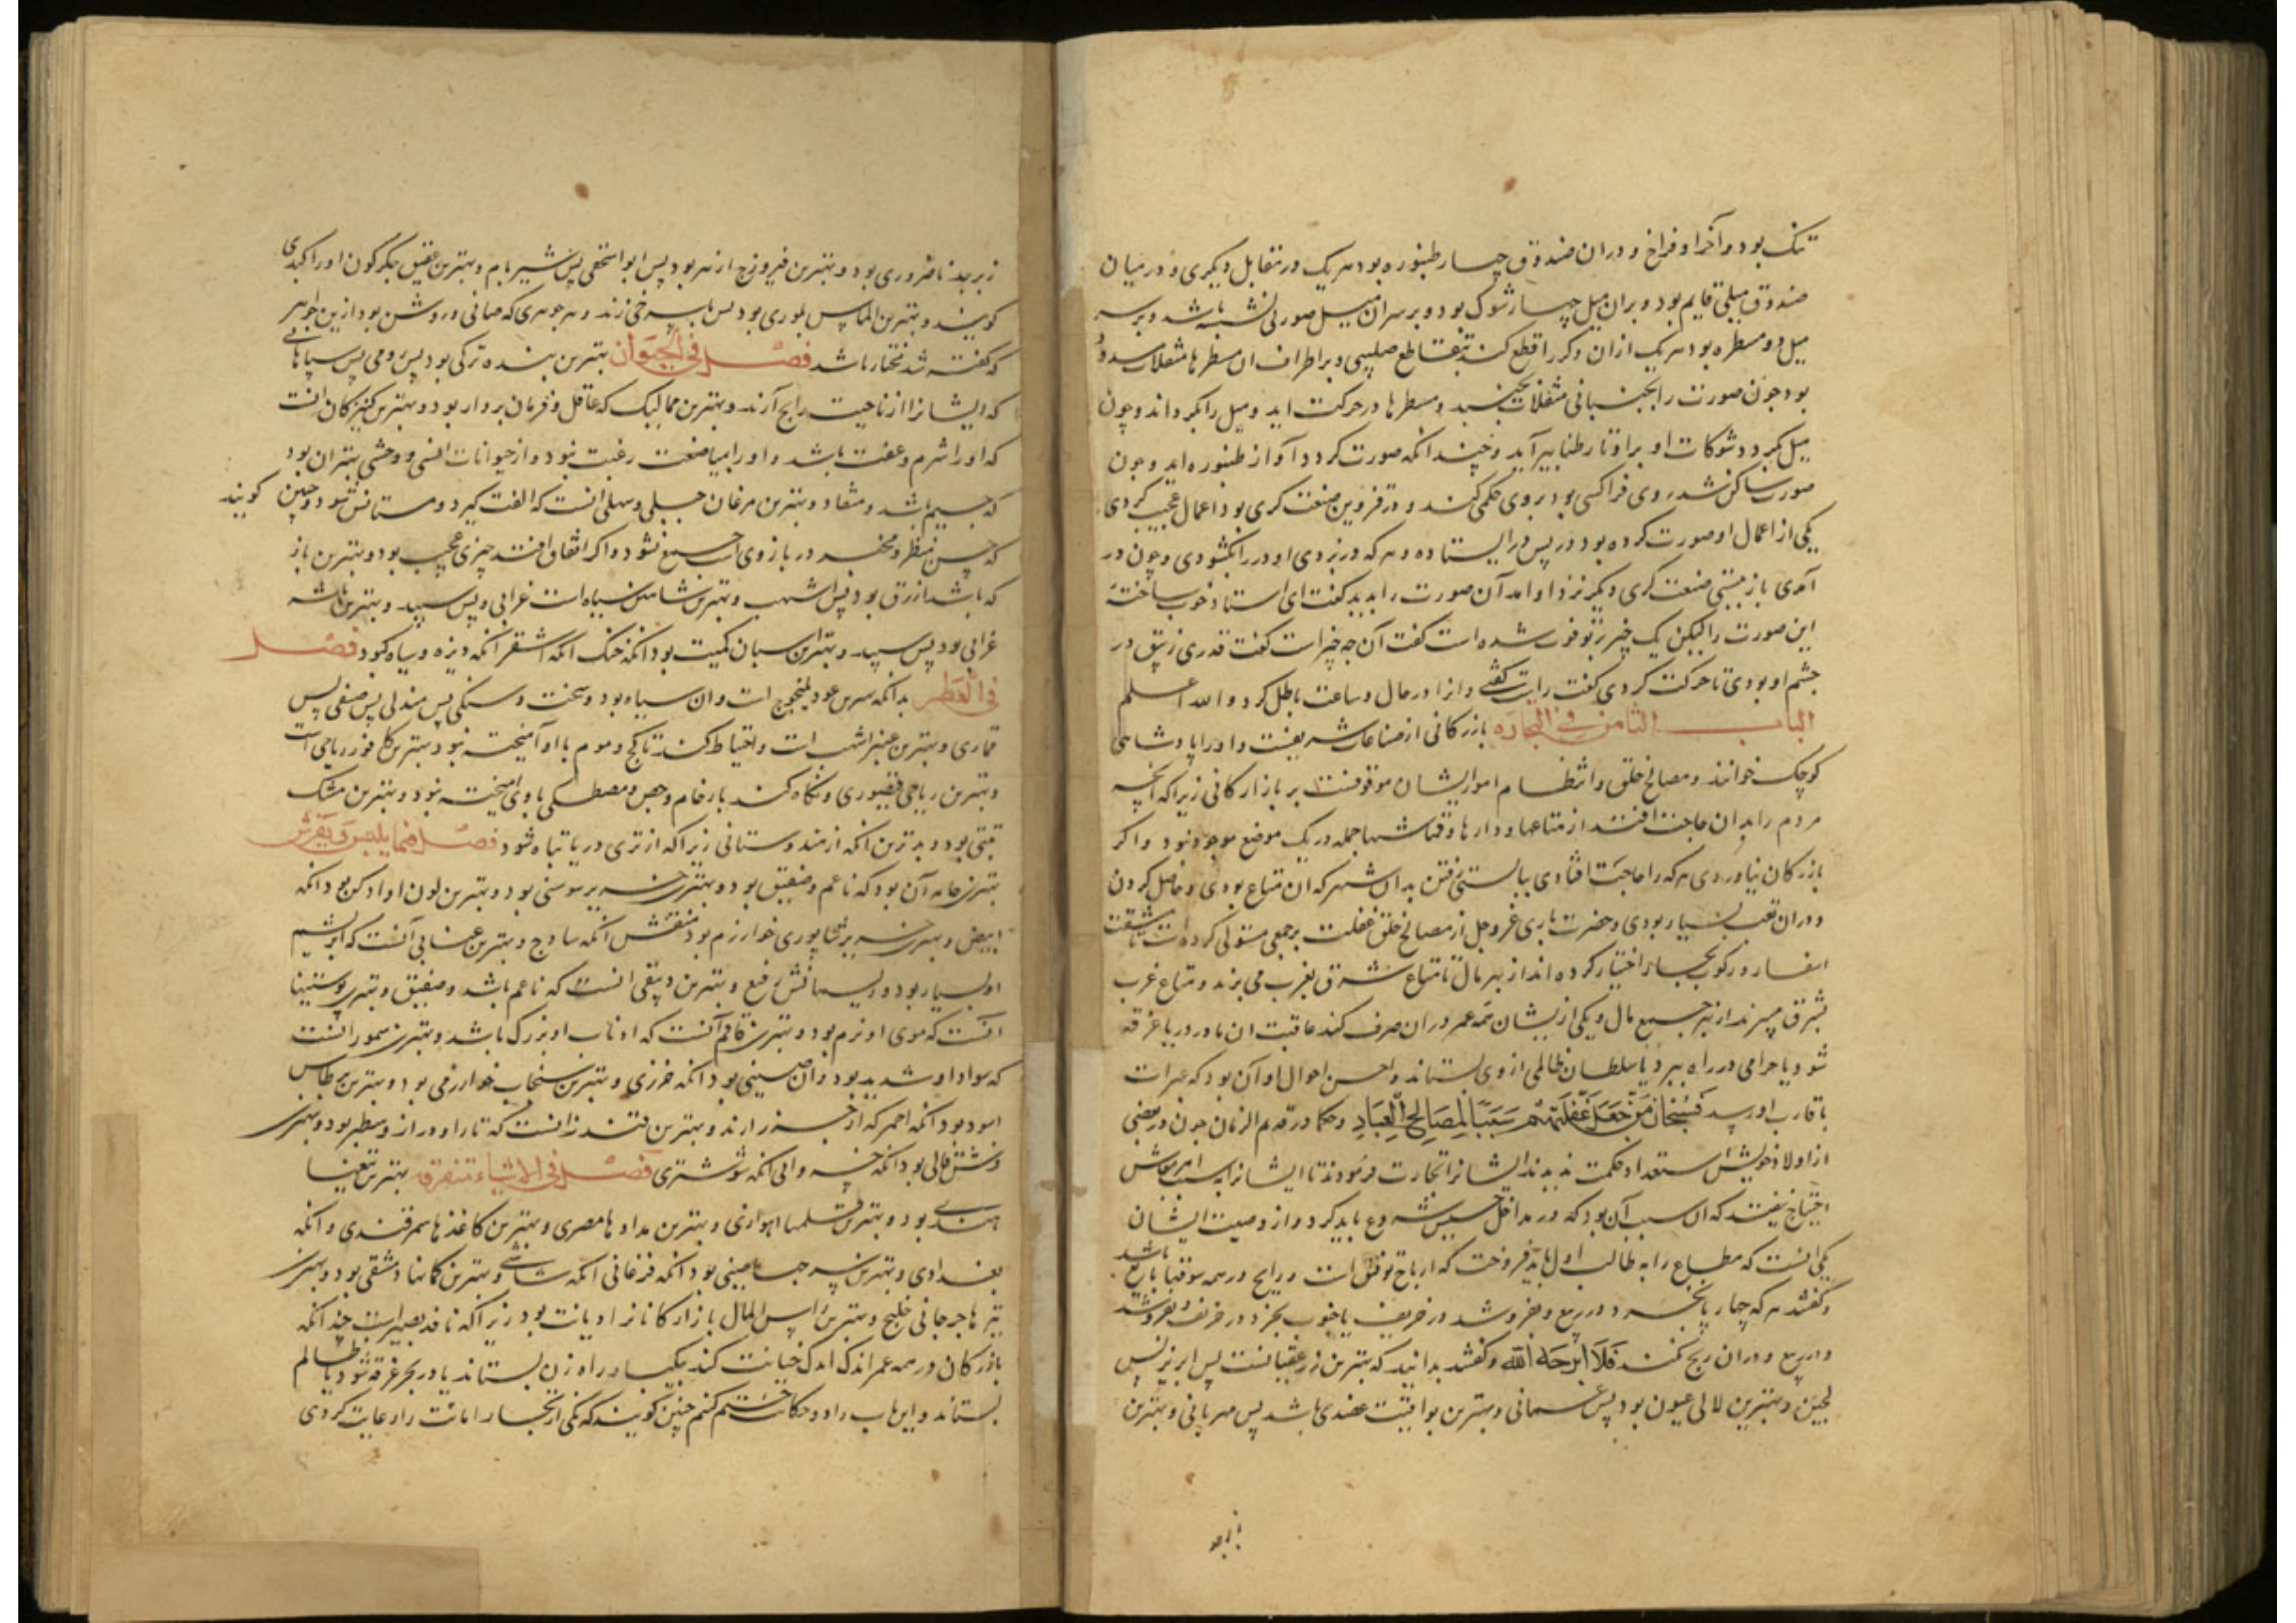 تنک بود و آخر او فراخ و دران صندوق چهار طنبوره بود هر یک در مقابل دیکری و در میان
صندوق میلی قایم بود و بران میل چهار شوک بود و بر سر ان میل صورتی نشسته باشد و بر سه
میل دو مسطره بود هر یک ازان دکر را قطع کند بتقاطع صلیبی و بر اطراف ان مسطرها مثقلات
بود چون صورت را بجنبانی مثقلات بجنبد و مسطرها در حرکت اید و میل را بکرداند و چون
میل بکردد شوکات او بر اوتار طنابیر آید و چندانکه صورت کردد آواز طنبوره اید و چون
صورت ساکن شد روی فرا کسی بود بر وی حکمی کنند و در قزوین صنعت کری بود اعمال عجیب کردی
یکی از اعمال او صورت کرده بود در پس در ایستاده و هر که در بزدی او در را بکشودی و چون در
آمدی باز ببستی صنعت کری دیکر نزد او امد آن صورت را بدید کفت ای استاد خوب ساختهٔ
این صورت را لیکن یک چیز ز تو فوت شده است کفت آن چه چیز است کفت قدری زیبق در
چشم او بودی تا حرکت کردی کفت راست کفتی و انرا در حال و ساعت باطل کرد و الله اعلم
الباب الثامن فی التجاره بازرکانی از صناعات شریفست و او را پادشاهی
کوچک خوانند و مصالح خلق و انتظام امور ایشان موقوفست بر بازارکانی زیرا که انچه
مردم را بدان حاجت افتد از متاعها و دارها و قماشها جمله در یک موضع موجود نبود و اکر
بازرکان نیاوردی هر که را حاجت افتادی ببایستی رفتن بدان شهر که ان متاع بودی و حاصل کردن
و دران تعب بسیار بودی و حضرت باری عز و جل از مصالح خلق غفلت بر جمعی مستولی کرده است تا مشقت
اسفار و رکوب بحار اختیار کرده اند از بهر مال تا متاع شرق بغرب می برند و متاع غرب
بشرق میبرند از بهر جمیع مال و یکی از یشان همه عمر دران صرف کند عاقبت ان مال در دریا غرقه
شود یا حرامی در راه ببرد یا سلطان ظالمی از وی بستاند و احسن احوال او آن بود که میراث
باقارب او رسد فسبحان من جعل غفلتهم سببا لمصالح العباد و حکما در قدیم الزمان چون در بعضی
از اولاد خویش استعداد حکمت ندیدند ایشانرا تجارت فرمودند تا ایشانرا
احتیاج نیفتد که ان سبب آن بود که در مداخل خسیس شروع باید کرد و از وصیت ایشان
یکی انست که متاع را به طالب اول باید فروخت که ارباح توفیق است و رابح در همه موقتها باشد
و کفتند هر که چهار پا بخرد در ربیع و بفروشد در خریف یا خوب بخرد در خریف و بفروشد
در ربیع و دران ربح نکند فلا اربحه الله و کفتند بدانید که بهترین زر عقیانست پس ابریز پس
لجین و بهترین لالی عیون بود پس عمانی و بهترین یواقیت باشد پس مهربانی و بهترین
زبرجد ناضروری بود و بهترین فیروزج ازهر بود پس ابواسحقی پس شیربام و بهترین عقیق جکرکون او را کبدی
کویند و بهترین الماس بلوری بود پس با سرخی زند و هر جوهری که صافی و روشن بود ازین جواهر
که کفته شد مختار باشد فصل فی الحیوان بهترین بنده ترکی بود پس رومی پس سپاهانی
که ایشانرا از ناحیت رابح آرند و بهترین ممالیک که عاقل و فرمان بردار بود و بهترین کنیزکان انست
که او را شرم و عفت باشد و او را بمباضعت رغبت نبود و از حیوانات انسی و وحشی بهتر ان بود
که جسیم باشد و منقاد و بهترین مرغان جبلی و سهلی انست که الفت کیرد و مستانس شود و چنین کویند
که حسن منظر و مخبر در بازوی جمع نشود و اکر اتفاق افتد چیزی عجیب بود و بهترین باز
که باشد ازرق بود پس اشهب و بهترین شاهین سیاه است غرابی و پس سپید و بهترین باشه
غرابی بود پس سپید و بهتر اسبان کمیت بود انکه خنک انکه اشقر انکه دیزه و سیاه کبود فصل
فی العطر بدانکه بهترین عود یلنجوج است و ان سیاه بود و سخت و سنکی پس مندلی پس صنفی پس
قماری و بهترین عنبر اشهب است و احتیاط کنند تا کچ و موم با او آمیخته نبود و بهترین کافور رباحی است
و بهترین رباحی فیصوری و نکاه کنند با رخام و جص و مصطکی با وی امیخته نبود و بهترین مشک
تبتی بود و بدترین انکه از هندوستانی زیرا که از تری دریا تباه شود فصل فیما یلبس و یفرش
بهترین جامه آن بود که ناعم و صفیق بود و بهترین خز سوسنی بود و بهترین لون او ادکن بود انکه
ابیض و بهترین نشابوری خوارزم بود منقش انکه ساذج و بهترین عتابی آنست که ابریشم
او بسیار بود و ریسمانش رفیع و بهترین دیبقی انست که ناعم باشد و صفیق و بهترین پوستینها
انست که موی او نرم بود و بهترین قاقم آنست که اذناب او بزرک باشد و بهترین سمور انست
که سواد او شدید بود و ان صینی بود انکه خزری و بهترین سنجاب خوارزمی بود و بهترین برطاس
اسود بود انکه احمر که از خزر ارند و بهترین قندز انست که تارا و دراز و سطبر بود و بهترین
فرشها قالی بود انکه شوشتری فصل فی الاشیاء متفرقه بهترین تیغها
هندی بود و بهترین قلمها اهوازی و بهترین مدادها مصری و بهترین کاغذها سمرقندی و انکه
بغدادی و بهترین سپرها صینی بود انکه فرغانی انکه شاشی و بهترین کمانها دمشقی بود و بهترین
تیرها جرجانی خلیج و بهترین راس المال بازارکانانرا دیانت بود زیرا که ناقد بصیر است چندانکه
بازرکان در همه عمر اندک اندک خیانت کند بیکبار راه زن بستاند یا در بحر غرقه شود یا ظالم
بستاند و این باب را دو حکایت ختم کنم چنین کویند که یکی از تجار امانت را رعایت کردی